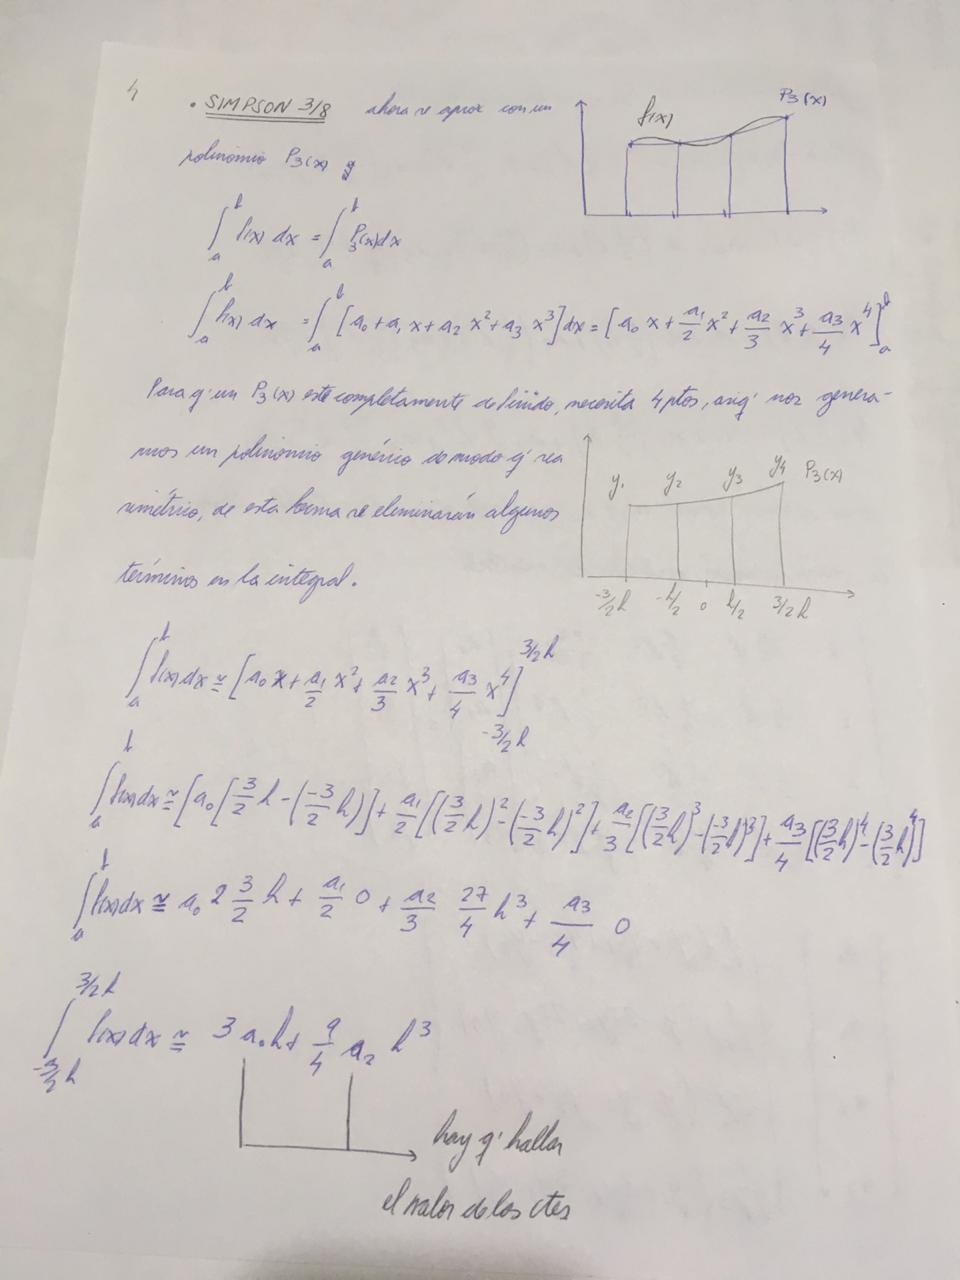 4
• SIMPSON 3/8 ahora se aprox con un
polinomio P₃(x) y
f(x) P₃(x)
∫ₐᵇ f(x) dx = ∫ₐᵇ P₃(x)dx
∫ₐᵇ f(x) dx = ∫ₐᵇ [a₀ + a₁ x + a₂ x² + a₃ x³] dx = [a₀ x + a₁/2 x² + a₂/3 x³ + a₃/4 x⁴]ₐᵇ
Para q' un P₃(x) este completamente definido, necesita 4 ptos, asiq' nos genera-
mos un polinomio genérico de modo q' sea
simétrico, de esta forma se eliminarán algunos
términos en la integral.
y₁ y₂ y₃ y₄ P₃(x)
-3/2 h -h/2 0 h/2 3/2 h
∫ₐᵇ f(x) dx ≅ [a₀ x + a₁/2 x² + a₂/3 x³ + a₃/4 x⁴]₋₃/₂ₕ^3/2h
∫ₐᵇ f(x) dx ≅ [a₀ [3/2 h - (-3/2 h)] + a₁/2 [(3/2 h)² - (-3/2 h)²] + a₂/3 [(3/2 h)³ - (-3/2 h)³] + a₃/4 [(3/2 h)⁴ - (3/2 h)⁴]]
∫ₐᵇ f(x) dx ≅ a₀ 2 3/2 h + a₁/2 0 + a₂/3 27/4 h³ + a₃/4 0
∫₋₃/₂ₕ^3/2h f(x) dx ≅ 3 a₀ h + 9/4 a₂ h³
hay q' hallar
el valor de las ctes